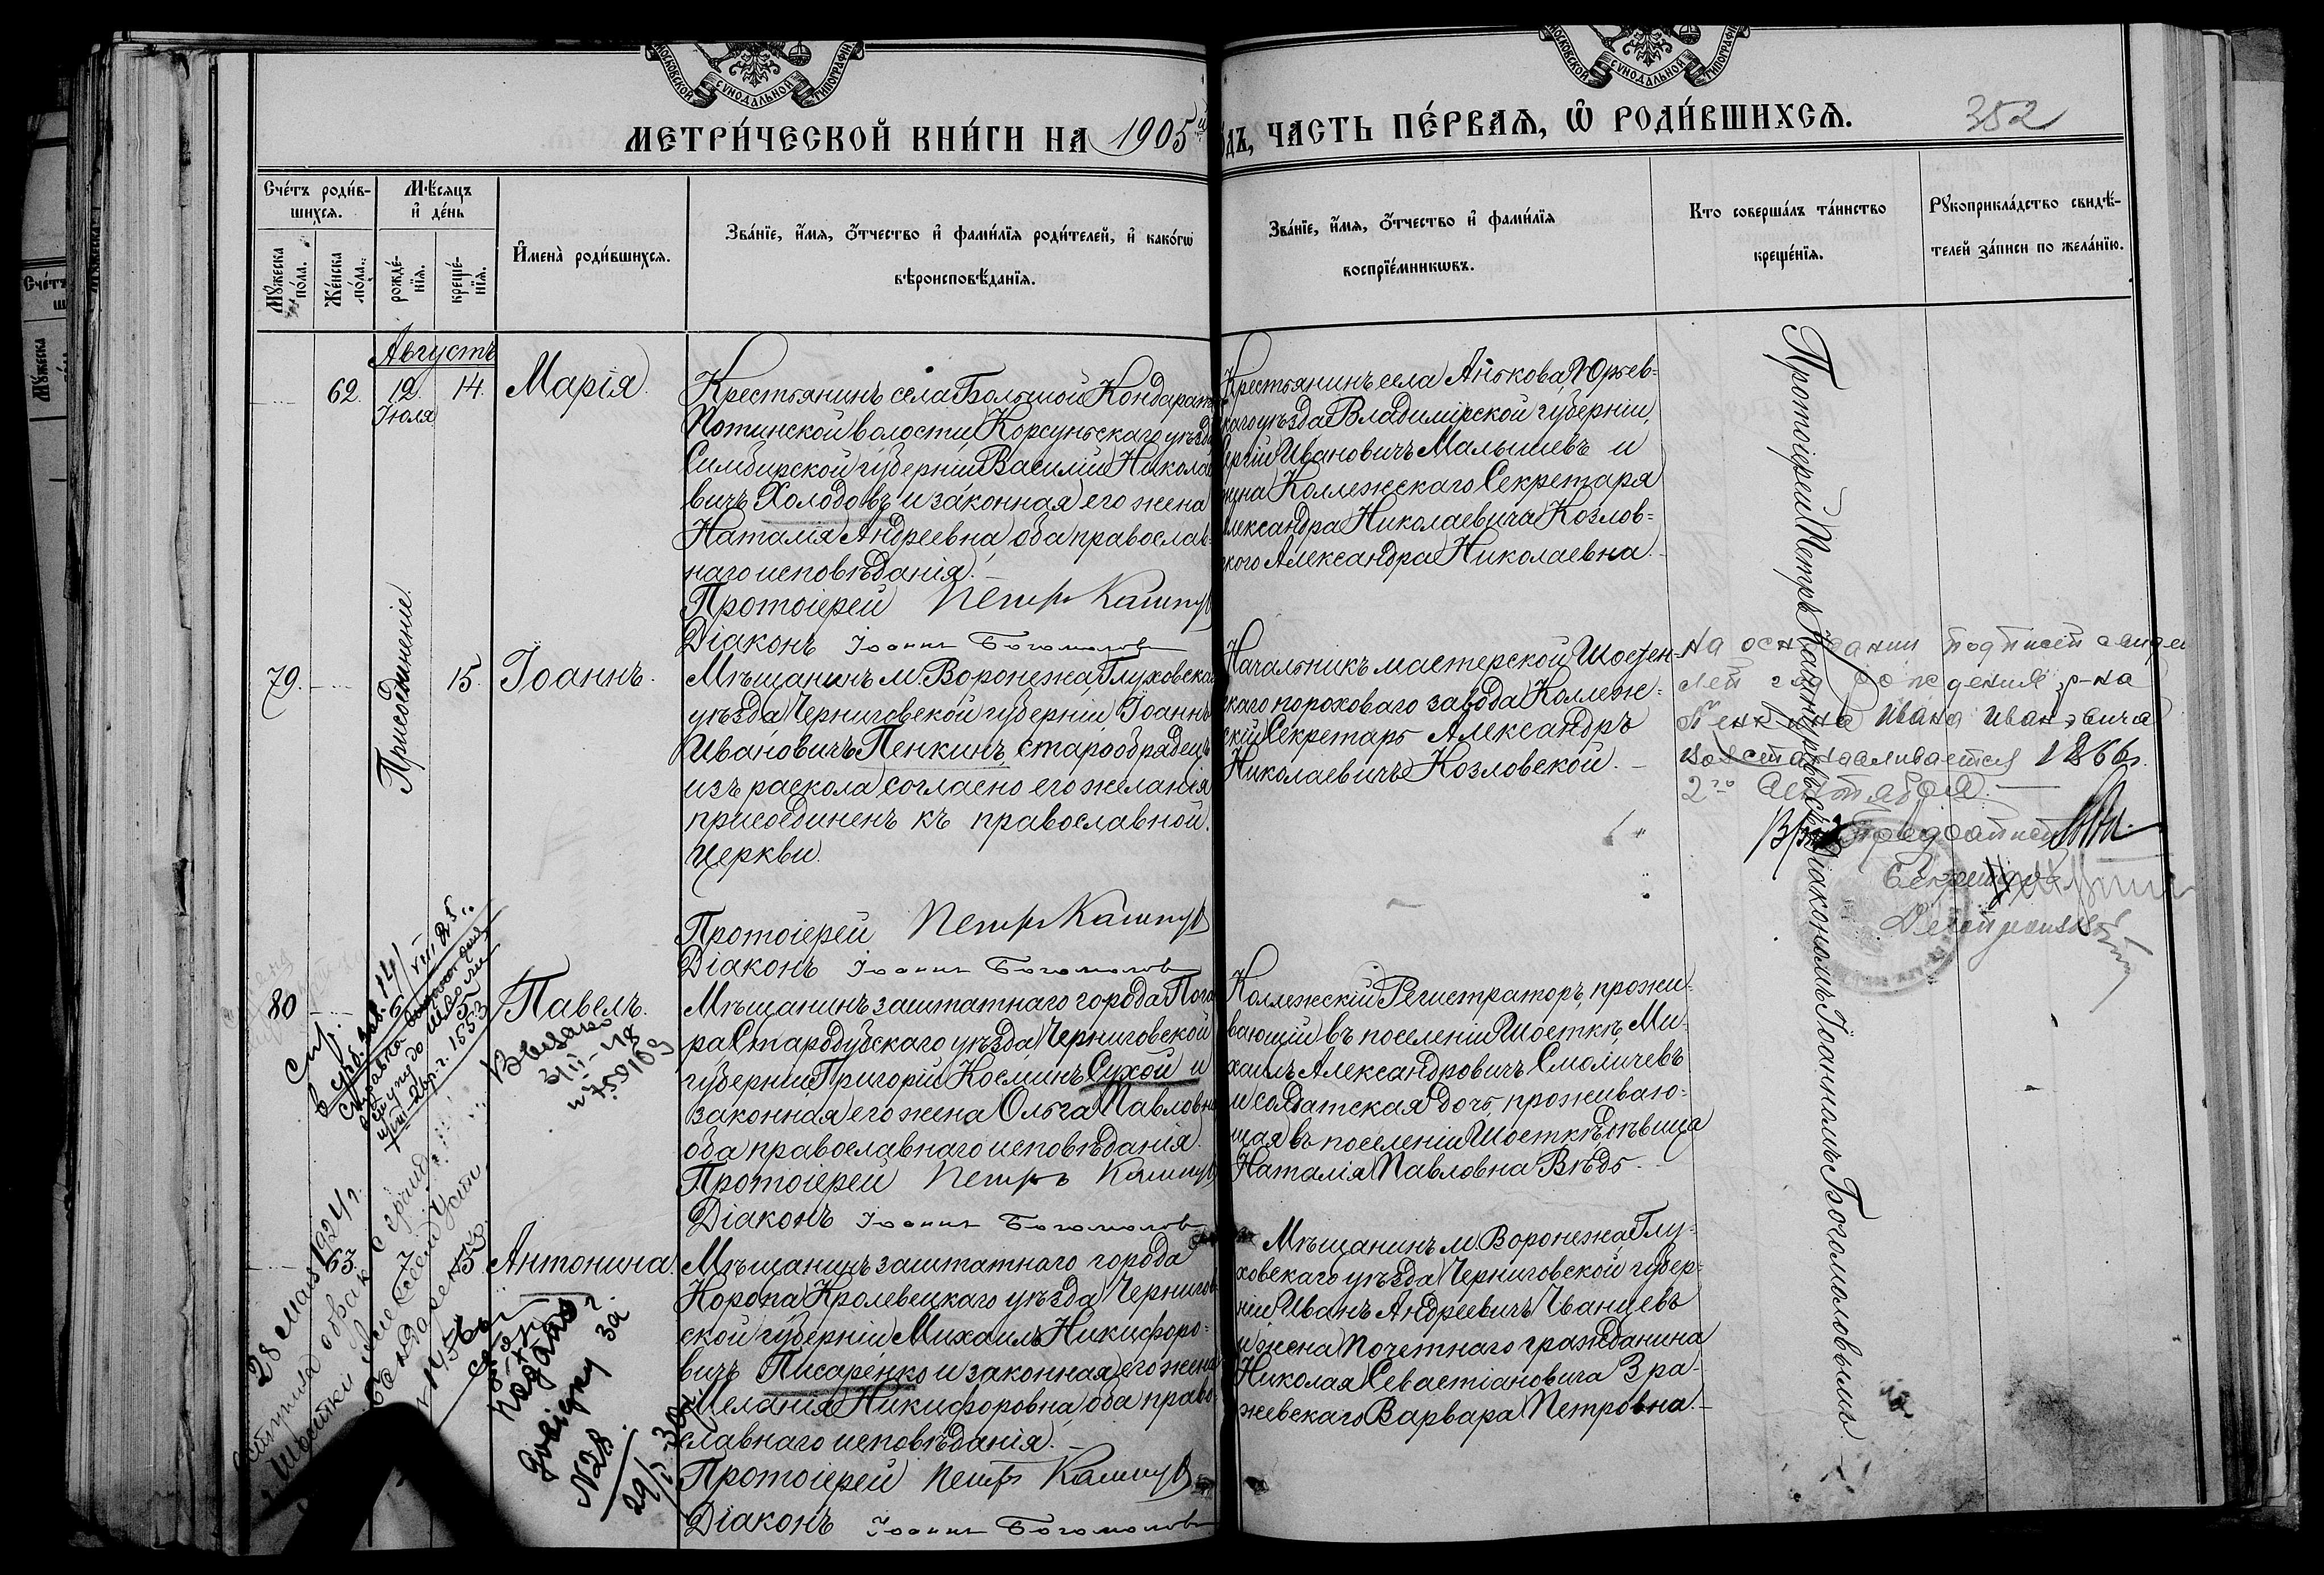 МОСКОВСКОЙ СѴНОДАЛЬНОЙ ТИПОГРАФІИ
МОСКОВСКОЙ СѴНОДАЛЬНОЙ ТИПОГРАФІИ
МЕТРИ́ЧЕСКОЙ КНИ́ГИ НА 1905й
ГО́ДЪ, ЧАСТЬ ПЕ́РВАѦ, Ѽ РОДИ́ВШИХСѦ.
352
Сче́тъ роди́в-
шихсѧ.
Мꙋ́жеска по́ла.
Же́нска по́ла.
Мѣ́сѧцъ
и҆ де́нь
рожде́-
нїѧ.
креще́-
нїѧ.
И҆мена̀ роди́вшихсѧ.
Зва́нїе, и҆́мѧ, ѻ҆́тчество и҆ фами́лїѧ роди́телей, и҆ како́гѡ
вѣроисповѣ́данїѧ.
Зва́нїе, и҆́мѧ, ѻ҆́тчество и҆ фами́лїѧ
воспрїе́мникѡвъ.
Кто соверша́лъ та́инство
креще́нїѧ.
Рꙋкоприкла́дство свидѣ́-
телей за́писи по жела́нїю.
Августъ
62. 12. 14. Марія.
Іюля
Крестьянинъ села Большой Кондарать
Потинской волости, Корсуньскаго уѣзда
Симбирской губерніи Василій Никола
вичъ Холодовъ и законная его жена
Наталія Андреевна, оба православ-
наго исповѣданія.
Протоіерей Петръ Кашпур
Діаконъ Іоаннъ Богомолов
Крестьянинъ села Анькова, Юрьев-
каго уѣзда Владимірской губерніи,
ергій Ивановичъ Малышевъ и
жена Коллежскаго Секретаря
лександра Николаевича Козлов-
ского Александра Николаевна.
Протоіерей Петръ Кашпуровъ съ Діакономъ Іоанномъ Богомоловымъ
79. Присоединеніе. 15. Іоаннъ.
Мѣщанинъ м. Воронежа, Глуховска
уѣзда Черниговской губерніи, Іоаннъ
Ивановичъ Пенкинъ, старообрядецъ
изъ раскола, согласно его желанія
присоединенъ къ православной
церкви.
Протоіерей Петръ Кашпур
Діаконъ Іоаннъ Богомолов
Начальникъ мастерской Шостен-
скаго пороховаго завода Коллеж-
скій Секретарь Александръ
Николаевичъ Козловской.
На основании подписей свиде
лей год рождения гр-на
Пенкина Ивана Ивановича
восстанавливается 1866 г.
2го Сентября.
Секретарь
80 6 Павелъ.
Мѣщанинъ заштатнаго города Пога
ра Стародубскаго уѣзда Черниговской
губерніи Григорій Косминъ Сухой и
законная его жена Ольга Павловна
оба православнаго исповѣданія.
Протоіерей Петръ Кашпур
Діаконъ Іоаннъ Богомолов
Коллежскій Регистраторъ, прожи-
вающій въ поселеніи Шосткѣ, Ми-
хаилъ Александровичъ Смоличевъ
и солдатская дочь, проживаю-
щая въ поселеніи Шосткѣ, дѣвица
Наталія Павловна Вѣдь.
63. 7 15. Антонина.
Мѣщанинъ заштатнаго города
Коропа Кролевецкаго уѣзда Чернигов
ской губерніи Михаилъ Никифоро-
вичъ Писаренко и законная его жена
Меланія Никифоровна, оба право-
славнаго исповѣданія.
Протоіерей Петръ Кашпур
Діаконъ Іоаннъ Богомолов
Мѣщанинъ м. Воронежа, Глу-
ховскаго уѣзда Черниговской губер-
ніи Иванъ Андреевичъ Иванцевъ
и жена Почетнаго гражданина
Николая Севастіановича Зра-
жевскаго Варвара Петровна.
28 мая 1924 г.
Видано
довідку за
N28